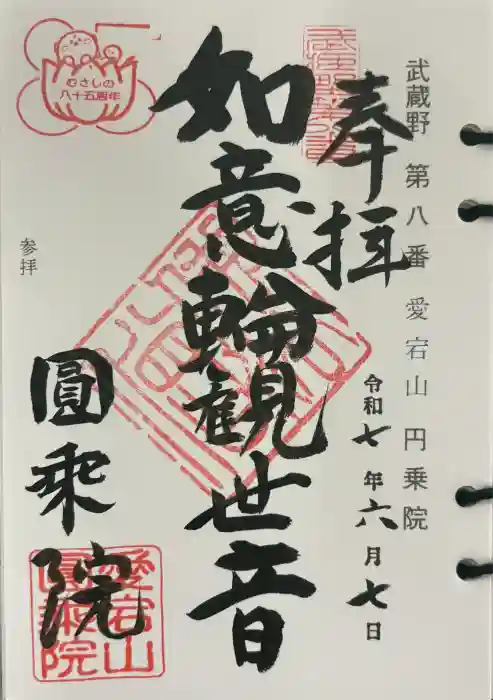 武蔵野 第八番 愛宕山 円乗院
奉拝
令和七年六月七日
如意輪觀世音
むさしの
八十五周年
参拝
圓乘院
愛宕山
圓乘院